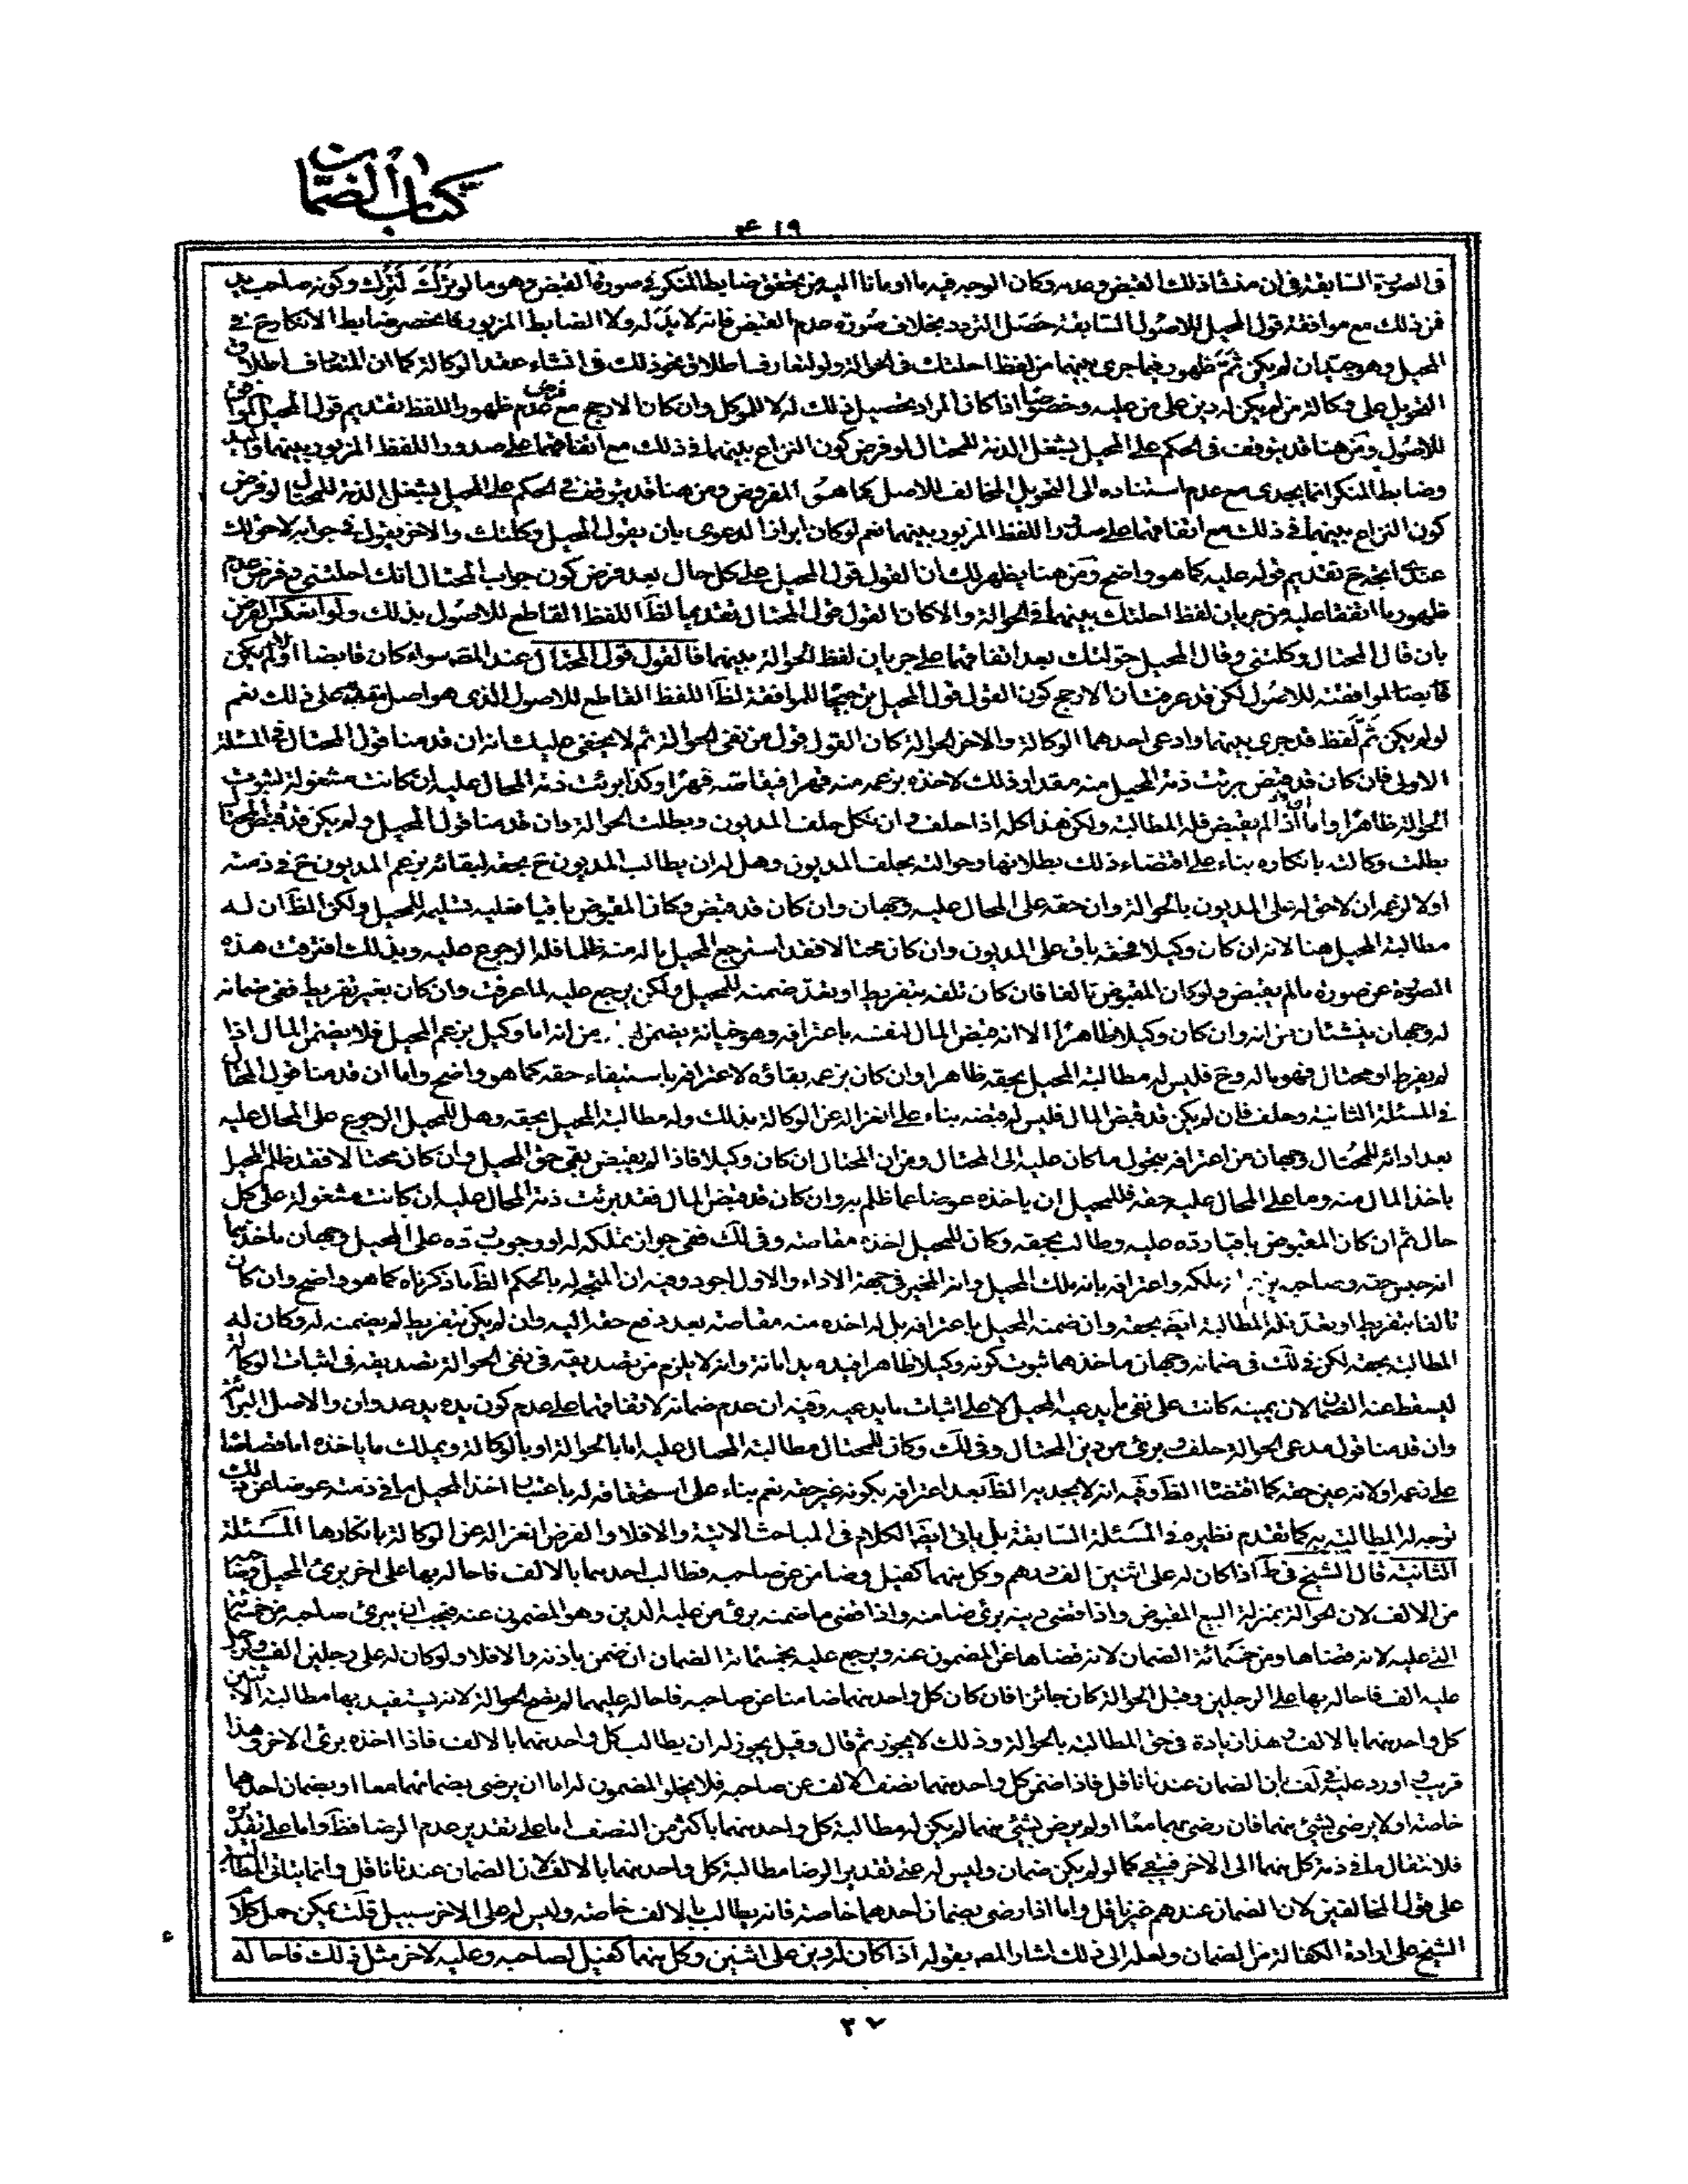 كتاب الضمان
٤١٩
في الصورة السابقة في ان منشأ ذلك القبض وعدمه وكان الوجه فيه ما اومأنا اليه من تحقق ضابط المنكر في صورة القبض وهو ما لو ترك لترك وكونه صاحب يد
فمن ذلك مع موافقة قول المحيل للاصول السابقة حصل التردد بخلاف صورة عدم القبض فانه لا يد له ولا الضابط المزبور فانحصر ضابط الانكار ح في
المحيل وهو جيد ان لم يكن ثم ظهور فيما جرى بينهما من لفظ احلتك في الحوالة ولو لتعارف اطلاق نحو ذلك في انشاء عقد الوكالة كما ان المتعارف اطلاق
التحويل على وكالة من لم يكن له دين على من عليه وخصوصا اذا كان المراد تحصيل ذلك له لا للموكل وان كان الارجح مع فرض عدم ظهور اللفظ تقديم قول المحيل
للاصول ومن هنا قد يتوقف في الحكم على المحيل بشغل الذمة للمحتال لو فرض كون النزاع بينهما في ذلك مع اتفاقهما على صدور اللفظ المزبور بينهما
وضابط المنكر انما يجدى مع عدم استناده الى التحويل المخالف للاصل كما هو المفروض ومن هنا قد يتوقف في الحكم على المحيل بشغل الذمة للمحتال لو فرض
كون النزاع بينهما في ذلك مع اتفاقهما على صدور اللفظ المزبور بينهما نعم لو كان ابراز الدعوى بان يقول المحيل وكلتك والاخر يقول في جوابه لا حق لك
عندي اتجه ح تقديم قوله عليه كما هو واضح ومن هنا يظهر لك ان القول قول المحيل على كل حال بعد فرض كون جواب المحتال انك احلتني وفرض عدم
ظهور ما اتفقا عليه من جريان لفظ احلتك بينهما في الحوالة والا كان القول قول المحتال تقديما لظا اللفظ القاطع للاصول بذلك ولو انعكس الفرض
بان قال المحتال وكلتني وقال المحيل حولتك بعد اتفاقهما على جريان لفظ الحوالة بينهما فالقول قول المحتال عند المصـ سواء كان قابضا او لم يكن
قابضا لموافقته للاصول لكن قد عرفت ان الارجح كون القول قول المحيل ترجيحا للموافقة لظا اللفظ القاطع للاصول الذي هو اصل مقدم على ذلك نعم
لو لم يكن ثم لفظ قد جرى بينهما وادعى احدهما الوكالة والاخر الحوالة كان القول قول من نفى الحوالة ثم لا يخفى عليك انه ان قدمنا قول المحتال في المسئلة
الاولى فان كان قد قبض برئت ذمة المحيل منه مقدار ذلك لاخذه بزعمه منه قهرا فيقاصه قهرا وكذا برئت ذمة المحال عليه ان كانت مشغولة لثبوت
الحوالة ظاهرا واما اذا لم يقبض فله المطالبة ولكن هذا كله اذا حلف وان نكل حلف المديون وبطلت الحوالة وان قدمنا قول المحيل ولم يكن قد قبض المحتال
بطلت وكالته بانكاره بناء على اقتضاء ذلك بطلانها وحوالته بحلف المديون وهل له ان يطالب المديون ح بحقه لبقائه بزعم المديون ح في ذمته
اولا لزعمه ان لا حق له على المديون بالحوالة وان حقه على المحال عليه وجهان وان كان قد قبض وكان المقبوض باقيا فعليه تسليمه للمحيل ولكن الظ ان له
مطالبة المحيل هنا لانه ان كان وكيلا فحقه باق على المديون وان كان محتالا فقد استرجع المحيل ماله منه ظلما فله الرجوع عليه وبذلك افترقت هذه
الصورة عن صورة ما لم يقبض ولو كان المقبوض تالفا فان كان تلفه بتفريط او بتعد ضمنه للمحيل ولكن يرجع عليه لما عرفت وان كان بغير تفريط ففي ضمانه
له وجهان ينشئان من انه وان كان وكيلا ظاهرا الا انه قبض المال لنفسه باعترافه وهو خيانة يضمن من انه اما وكيل بزعم المحيل فلا يضمن المال اذا
لم يفرط او محتال فهو ماله وح فليس له مطالبة المحيل بحقه ظاهرا وان كان بزعمه بقاؤه لاعترافه باستيفاء حقه كما هو واضح واما ان قدمنا قول المحتال
في المسئلة الثانية وحلف فان لم يكن قد قبض المال فليس له قبضه بناء على انعزاله عن الوكالة بذلك وله مطالبة المحيل بحقه وهل للمحيل الرجوع على المحال عليه
بعد ادائه للمحتال وجهان من اعترافه بتحول ما كان عليه الى المحتال ومن ان المحتال ان كان وكيلا فاذا لم يقبض بقي حق المحيل وان كان محتالا فقد ظلم المحيل
باخذ المال منه وما على المحال عليه حقه فللمحيل ان ياخذه عوضا عما ظلم به وان كان قد قبض المال فقد برئت ذمة المحال عليه ان كانت مشغولة على كل
حال ثم ان كان المقبوض باقيا رده عليه وطالب بحقه وكان للمحيل اخذه مقاصة وفي لك ففي جواز تملكه له او وجوب رده على المحيل وجهان ماخذهما
انه جنس حقه وصاحبه ملكه واعترافه بانه ملك المحيل وانه المخير في جهة الاداء والاول اجود وفيه ان المتجه له بالحكم الظ ما ذكرناه كما هو واضح وان كان
تالفا بتفريط او بتعد فله المطالبة ايضا بحقه وان ضمنه المحيل باعترافه بل له اخذه منه مقاصة بعد دفع حقه اليه وان لم يكن بتفريط لم يضمنه له وكان له
المطالبة بحقه لكن في لك في ضمانه وجهان ماخذهما ثبوت كونه وكيلا ظاهرا فيده يد امانة وانه لا يلزم من تصديقه في نفي الحوالة تصديقه في اثبات الوكالة
ليسقط عنه الضمان لان يمينه كانت على نفي ما يدعيه المحيل لا على اثبات ما يدعيه وفيه ان عدم ضمانه لاتفاقهما على عدم كون يده يد عدوان والاصل البرائة
وان قدمنا قول مدعي الحوالة حلف وبرئ من دين المحتال وفي لك وكان للمحتال مطالبة المحال عليه اما بالحوالة او بالوكالة ويملك ما ياخذه اما قصاصا
على زعمه او لانه عين حقه كما اقتضاه الظ وفيه انه لا يجديه الظ بعد اعترافه بكونه غير حقه نعم بناء على استحقاقه له باعتبار اخذ المحيل ما في ذمته عوضا عن ذلك
توجه له المطالبة به كما تقدم نظيره في المسئلة السابقة بل ياتي ايضا الكلام في المباحث الاتية والا فلا والفرض انعزاله عن الوكالة بانكارها المسئلة
الثانية قال الشيخ في ط اذا كان له على اثنين الف درهم وكل منهما كفيل وضامن عن صاحبه فطالب احدهما بالالف فاحاله بها على اخر برئ المحيل وصاحبه
من الالف لان الحوالة بمنزلة البيع المقبوض واذا قضى دينه برئ ضامنه واذا قضى ما ضمنه برئ من عليه الدين وهو المضمون عنه فيجب ان يبرئ صاحبه من خمسمائة
التي عليه لانه قضاها ومن خمسمائة الضمان لانه قضاها عن المضمون عنه ويرجع عليه بخمسمائة الضمان ان ضمن باذنه والا فلا ولو كان له على رجلين الف ولرجل
عليه الف فاحاله بها على الرجلين وقبل الحوالة كان جائزا فان كان كل واحد منهما ضامنا عن صاحبه فاحاله عليهما لم تصح الحوالة لانه يستفيد بها مطالبة الاثنين
كل واحد منهما بالالف وهذا زيادة في حق المطالبة بالحوالة وذلك لا يجوز ثم قال وقيل يجوز له ان يطالب كل واحد منهما بالالف فاذا اخذه برئ الاخر وهذا
قريب واورد عليه في لف بان الضمان عندنا ناقل فاذا ضمن كل واحد منهما نصف الالف عن صاحبه فلا يخلو المضمون له اما ان يرضى بضمانهما معا او بضمان احدهما
خاصة او لا يرضى بشئ منهما فان رضى بهما معا او لم يرض بشئ منهما لم يكن له مطالبة كل واحد منهما باكثر من النصف اما على تقدير عدم الرضا فظ واما على تقديره
فلانتقال ما في ذمة كل منهما الى الاخر فيبقى كما لو لم يكن ضمان وليس له على تقدير الرضا مطالبة كل واحد منهما بالالف لان الضمان عندنا ناقل وانما يتاتى المطالبة
على قول المخالفين لان الضمان عندهم غير ناقل واما اذا رضى بضمان احدهما خاصة فانه يطالب بالالف خاصة وليس له على الاخر سبيل قلت يمكن حمل كلام
الشيخ على ارادة الكفالة من الضمان ولعله الى ذلك اشار المصـ بقوله اذا كان له دين على اثنين وكل منهما كفيل لصاحبه وعليه لاخر مثل ذلك فاحاله
٢٧